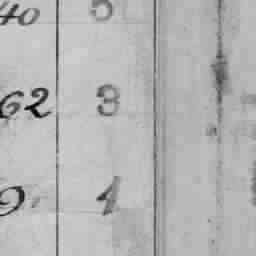 40 5
62 3
9. 1